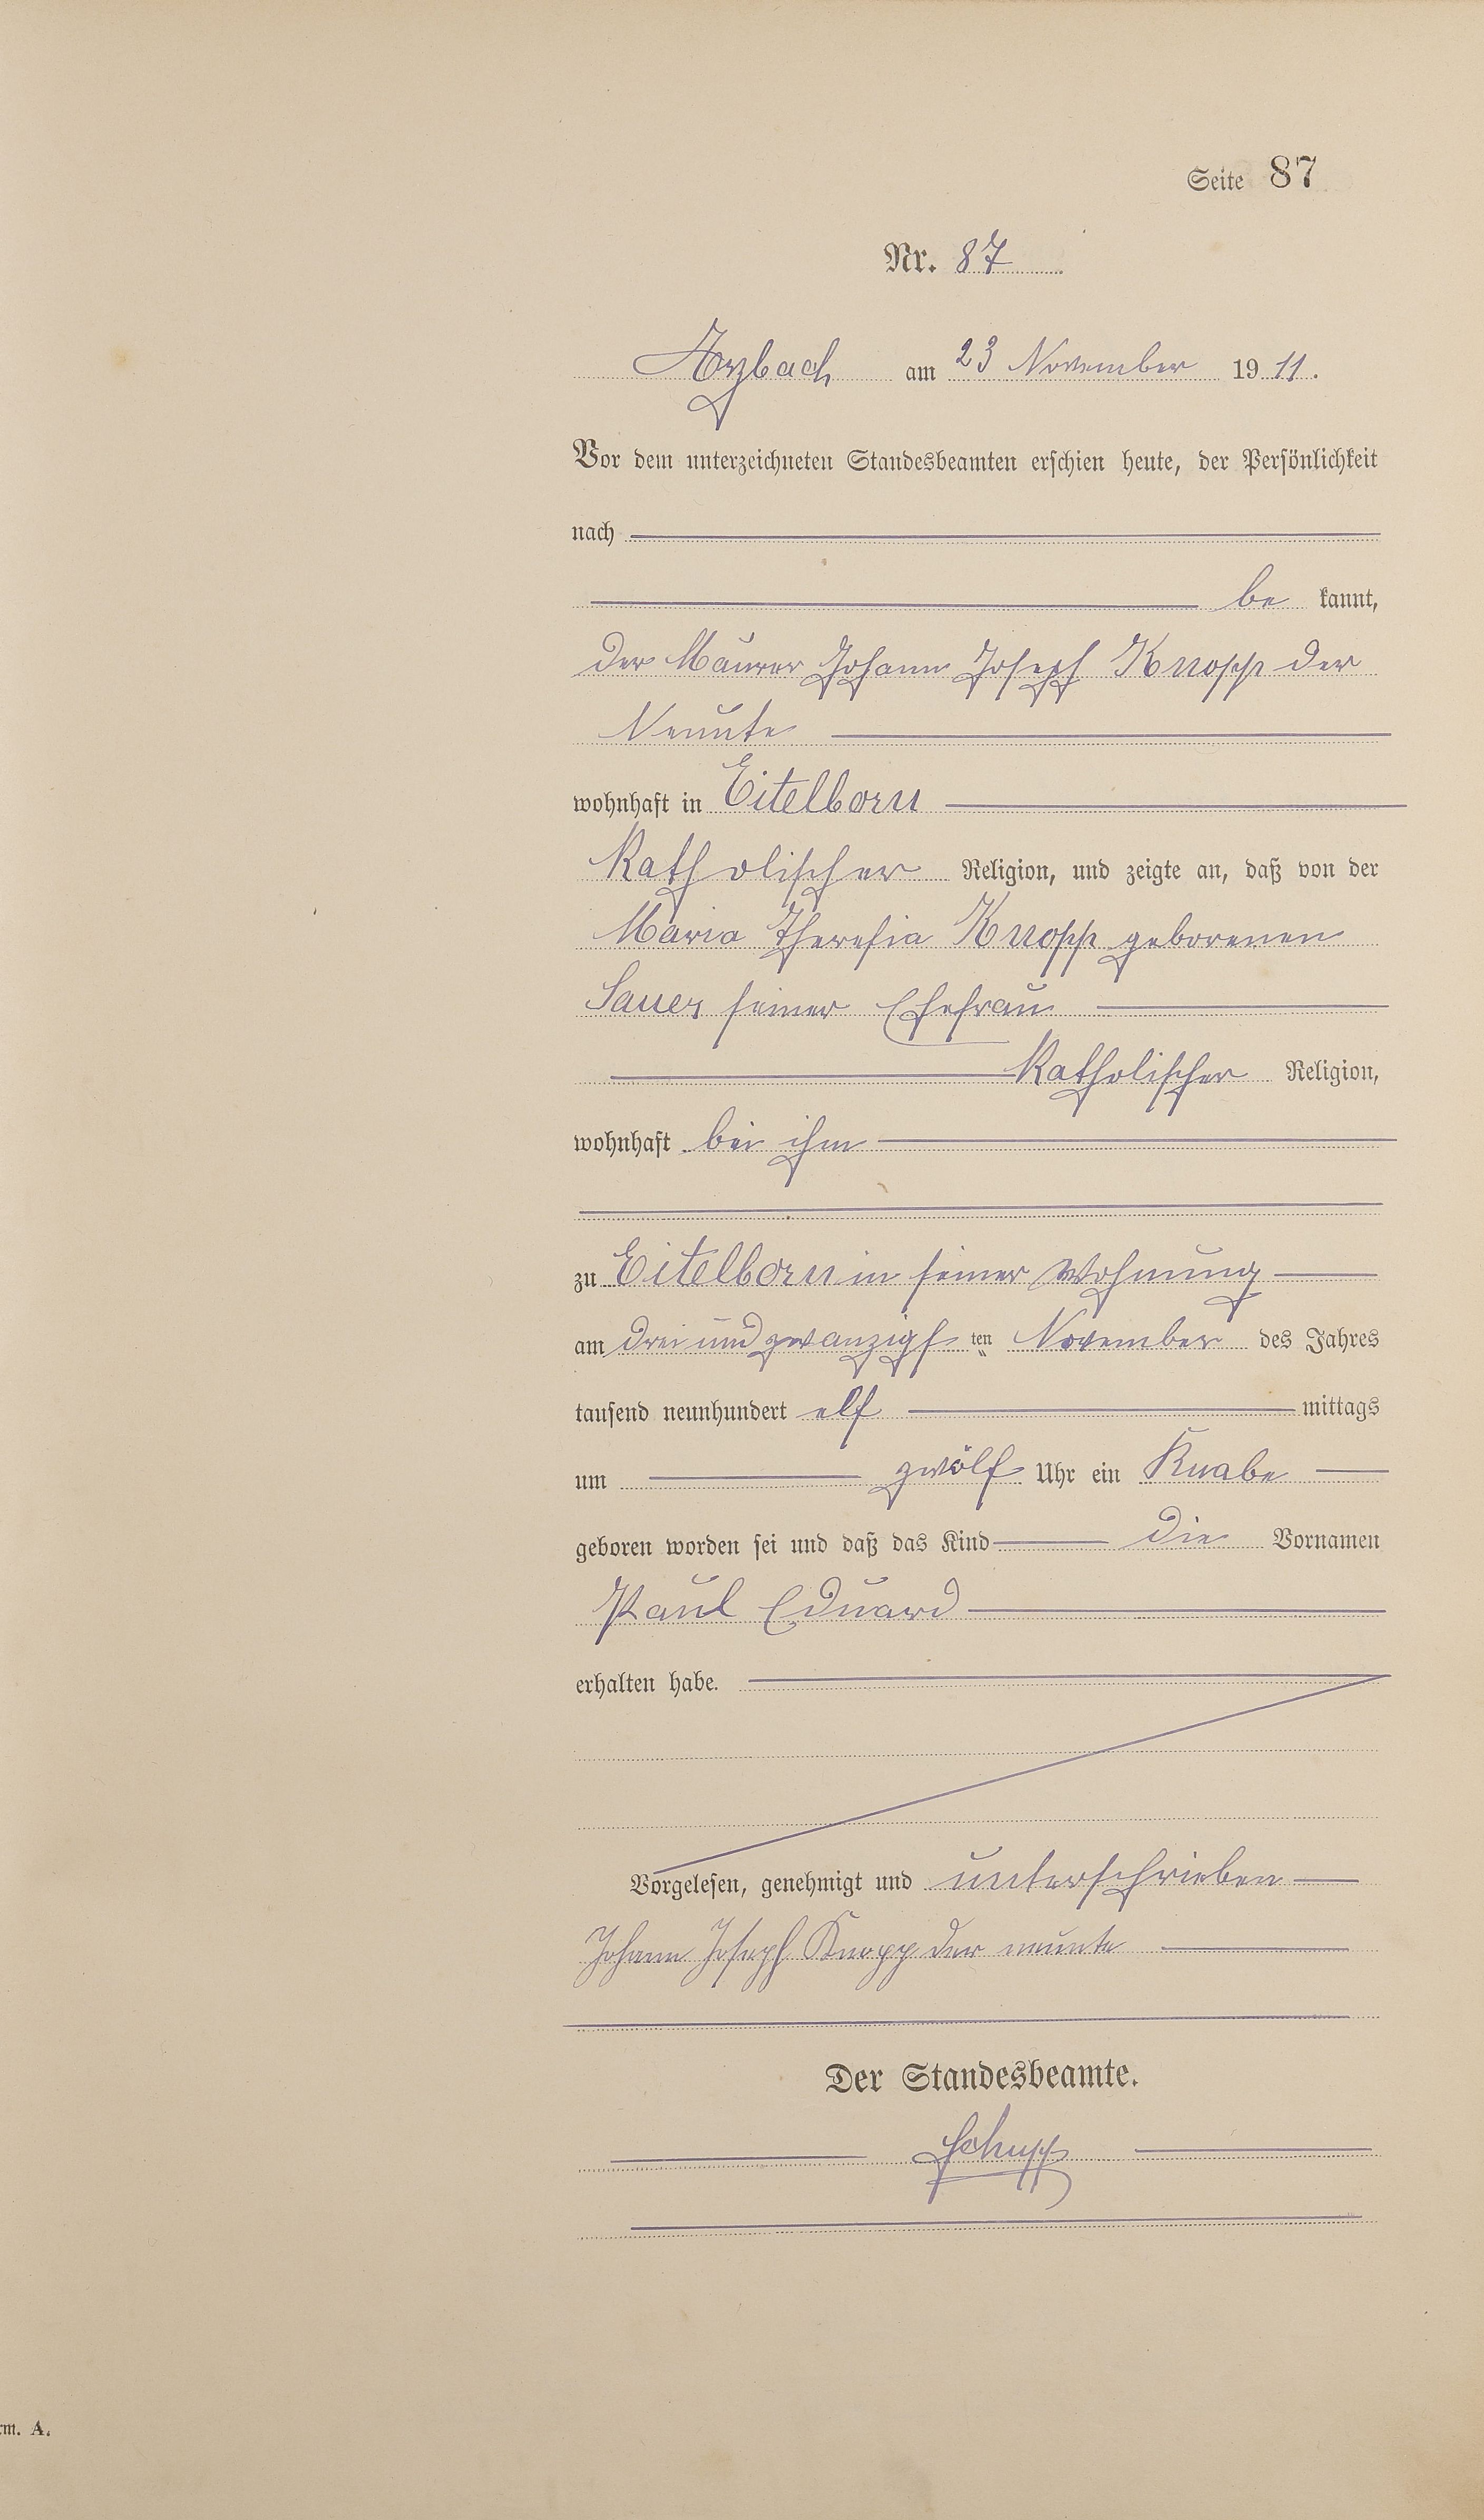 Seite 87
Nr. 87
Arzbach am 23 November 1911.
Vor dem unterzeichneten Standesbeamten erschien heute, der Persönlichkeit
nach
be kannt,
der Maurer Johann Joseph Knopp der
Neunte
wohnhaft in Eitelborn
Katholischer Religion, und zeigte an, daß von der
Maria Theresia Knopp geborenen
Sauer seiner Ehefrau
Katholischer Religion,
wohnhaft bei ihm
zu Eitelborn in seiner Wohnung
am drei und zwanzigsten November des Jahres
tausend neunhundert elf mittags
um zwölf Uhr ein Knabe
geboren worden sei und daß das Kind die Vornamen
Paul Eduard
erhalten habe.
Vorgelesen, genehmigt und unterschrieben
Johann Joseph Knopp der neunte
Der Standesbeamte.
Schupp
rm. A.